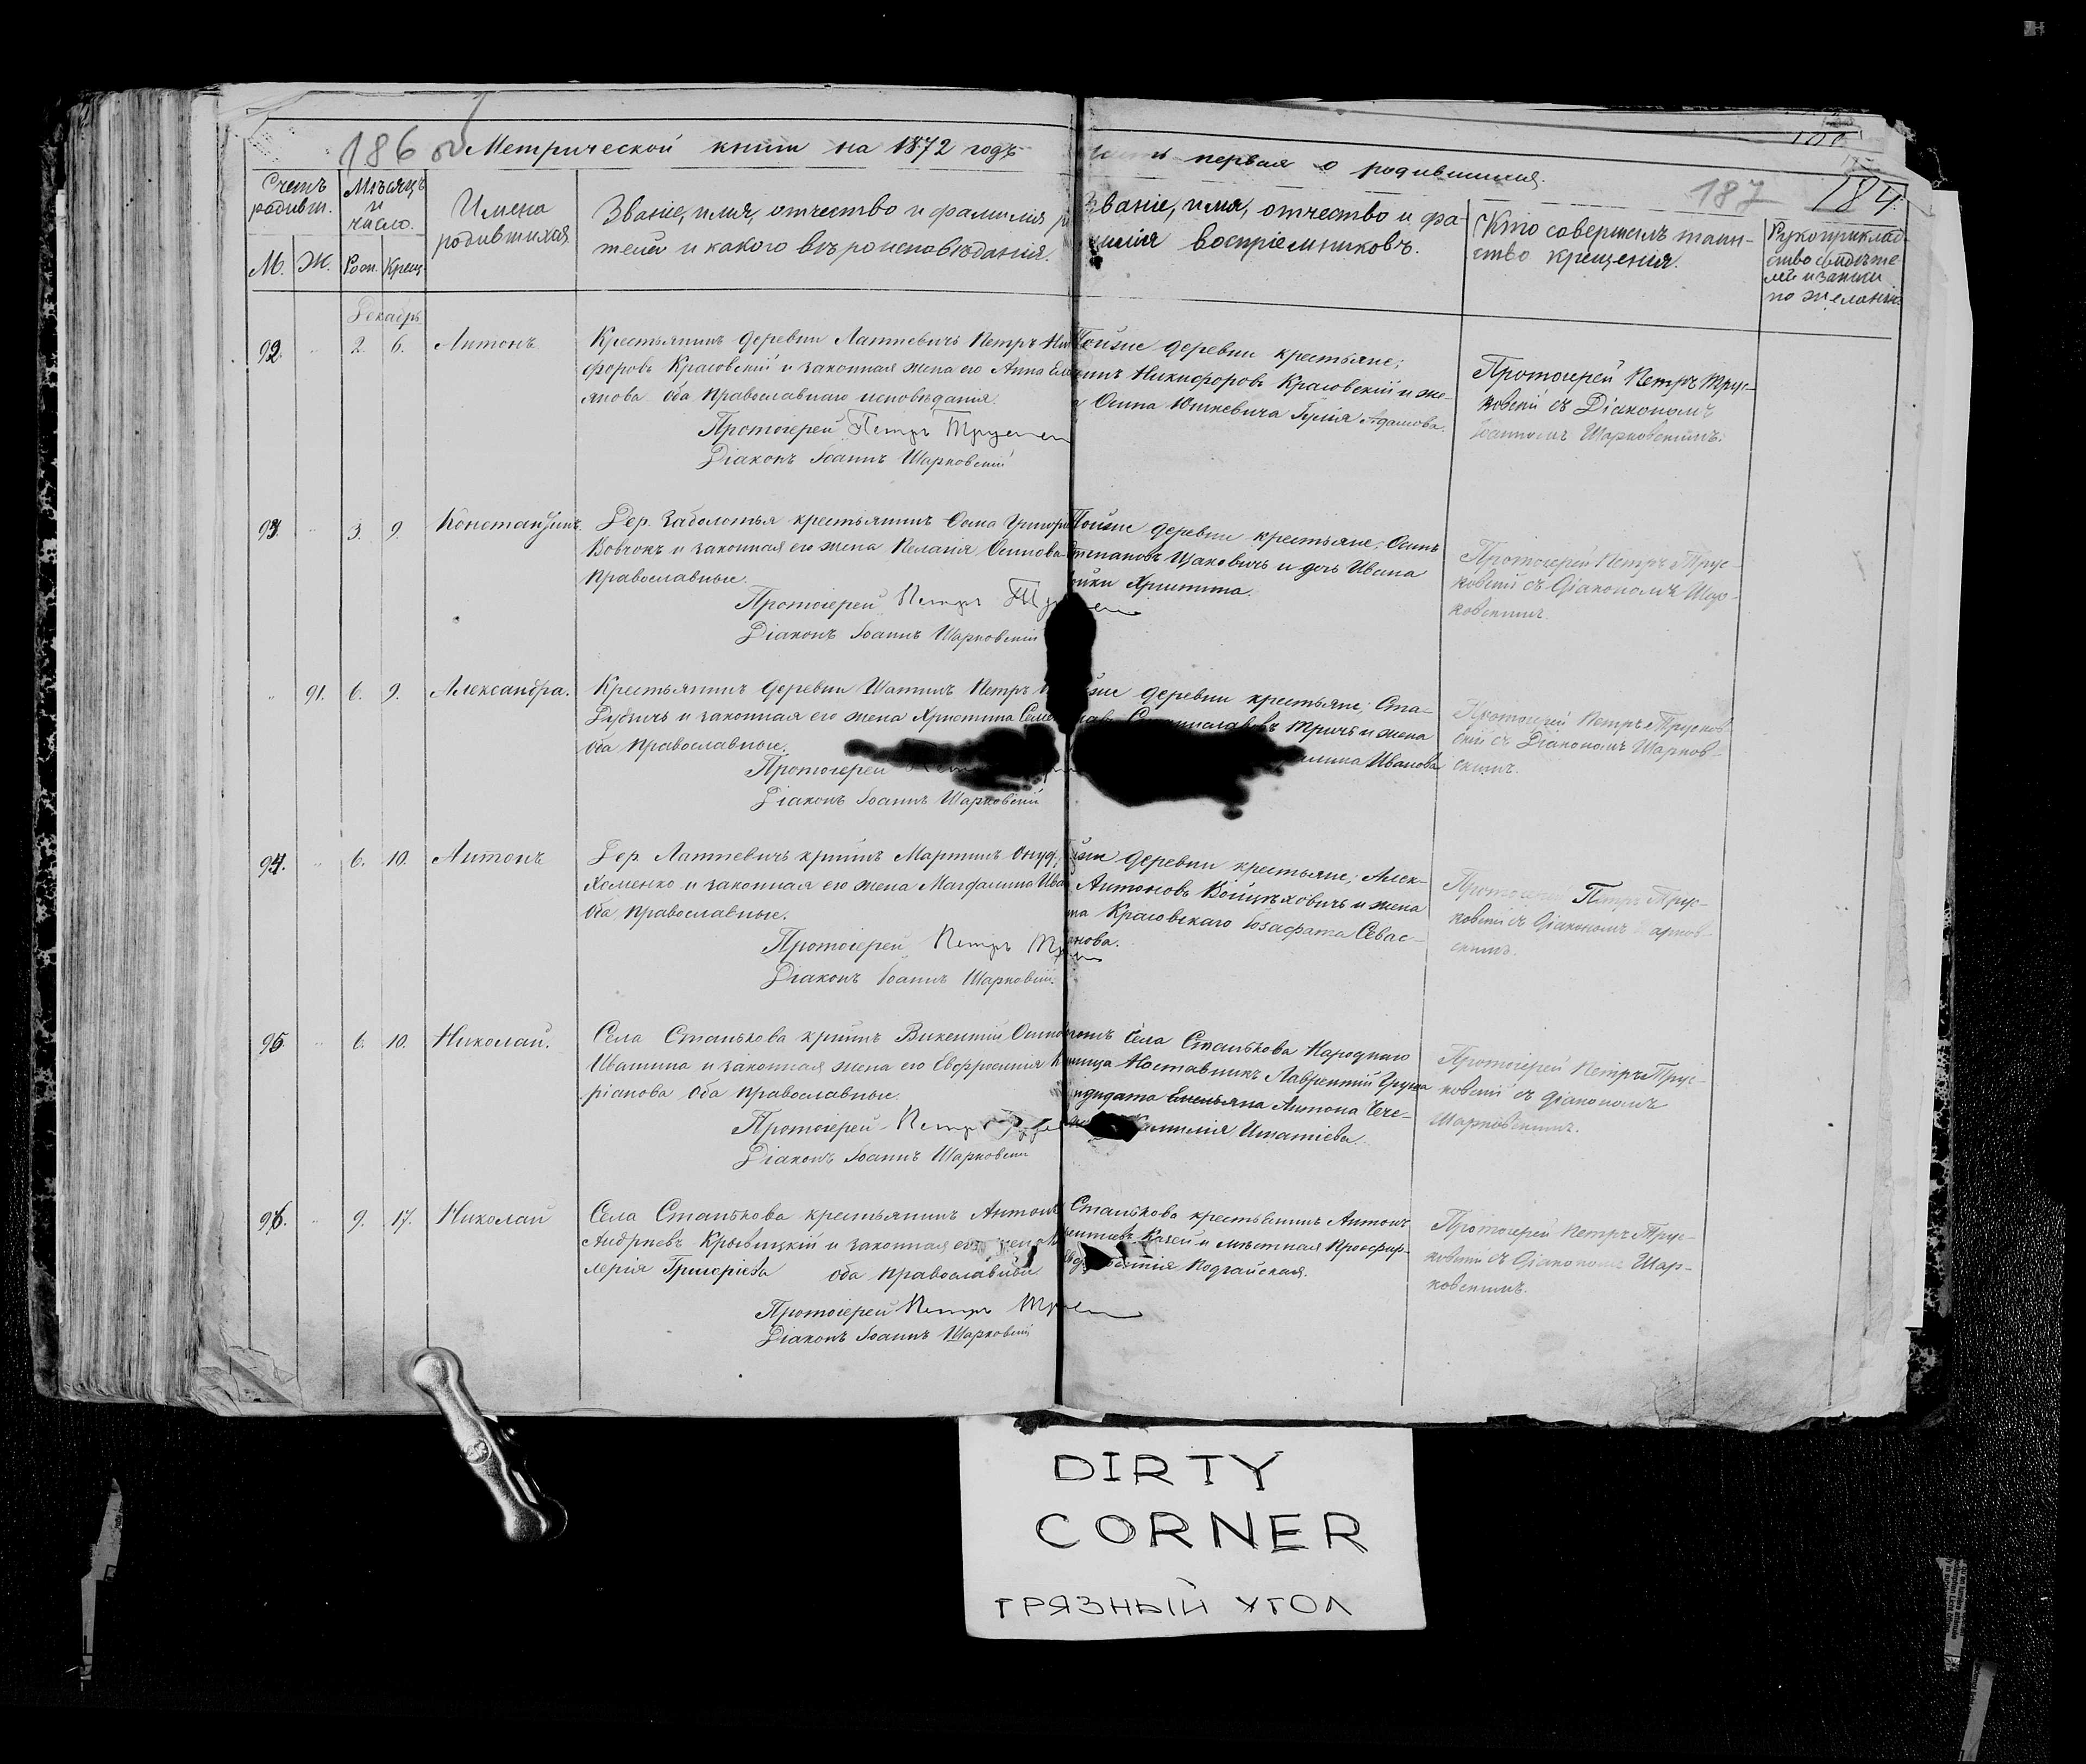 186 Метрической книги на 1872 годъ
первая о родившихся.
187 184
Счетъ родивш.
М. Ж.
Мѣсяцъ и число.
Рожд. Крещ.
Имена родившихся
Званіе, имя, отчество и фамилія
телей и какого вѣроисповѣданія.
Званіе, имя, отчество и фа-
милія воспріемниковъ.
Кто совершилъ таин-
ство крещенія.
Рукоприклад-
ство свидѣте
лей и записи
по желанію
Декабрь
92. 2. 6. Антонъ
Крестьянинъ деревни Латневичъ Петръ Ни
форовъ Красовскій и законная жена его Анна
янова оба православнаго исповѣданія.
Протоіерей Петръ
Діаконъ Іоаннъ Шарковскій
Тойже деревни крестьяне;
Никифоровъ Красовскій и же-
Осипа Юшкевича Юлія Адамова.
Протоіерей Петръ Трус-
ковскій съ Діакономъ
Іоанномъ Шарковскимъ.
93. 3. 9. Константинъ.
Дер. Заболотья крестьянинъ Фома
Вовчокъ и законная его жена Пелагія Осипова
православные.
Протоіерей Петръ
Діаконъ Іоаннъ Шарковскій
Тойже деревни крестьяне; Осипъ
Степановъ Цаковичъ и дочь Ивана
Христина.
Протоіерей Петръ Трус-
ковскій съ Діакономъ Шар-
ковскимъ.
91. 6. 9. Александра.
Крестьянинъ деревни Петръ
Дубничъ и законная его жена Христина
оба православные.
Протоіерей
Діаконъ Іоаннъ Шарковскій
деревни крестьяне; Ста-
и жена
Иванова
Протоіерей Петръ Трусков-
скій съ Діакономъ Шарков-
скимъ.
94. 6. 10. Антонъ
Дер. Латневичъ кр-инъ Мартинъ
Хоменко и законная его жена Магдалина
оба православные.
Протоіерей Петръ
Діаконъ Іоаннъ Шарковскій.
деревни крестьяне; Алек-
Антоновъ Войцѣховичъ и жена
Красовскаго Іозафата Севас-
янова.
Протоіерей Петръ Трус-
ковскій съ Діакономъ Шарков-
скимъ.
95 6. 10. Николай.
Села Станькова кр-инъ Викентій
Ивашина и законная жена его Евфросинія
ріанова оба православные.
Протоіерей Петръ
Діаконъ Іоаннъ Шарковскій
Села Станькова Народнаго
Наставникъ Лаврентій
Емельяна Антона Чече-
Игнатіева.
Протоіерей Петръ Трус-
ковскій съ Діакономъ
Шарковскимъ.
96. 9. 17. Николай
Села Станькова крестьянинъ Антонъ
Андреевъ Крывицкій и законная его жена
лерія Григоріева оба православные
Протоіерей Петръ
Діаконъ Іоаннъ Шарковскій
Станькова крестьянинъ Антонъ
Казей и мѣстная Просфир-
Подгайская.
Протоіерей Петръ Трус-
ковскій съ Діакономъ Шар-
ковскимъ.
DIRTY
CORNER
ГРЯЗНЫЙ УГОЛ